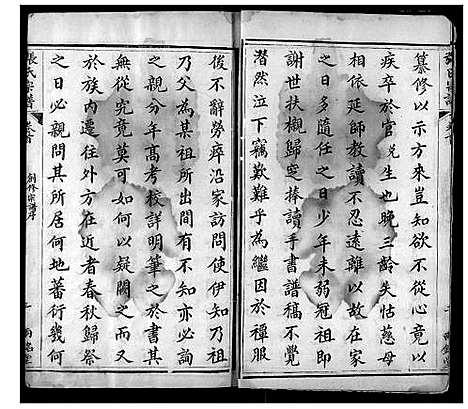 纂修以示方來豈知欲不從心竟以
疾卒於官兌生也晚三齡失怙慈母
相依延師教讀不忍遠離以故在家
之日多隨任之日少年未弱冠祖即
謝世扶櫬歸窆捧讀手書譜稿不覺
潸然泣下竊歎難乎為繼因於禫服
張氏宗譜
卷首
創修宗譜序
俊不辭勞瘁沿家訪問使伊知乃祖
乃父為某祖所出間有不知亦必詢
之親分年高考校詳明筆之於書其
無從究竟莫可如何以疑闕之而又
於族內遷往外方在近者春秋歸祭
之日必親問其所居何地蕃衍幾何